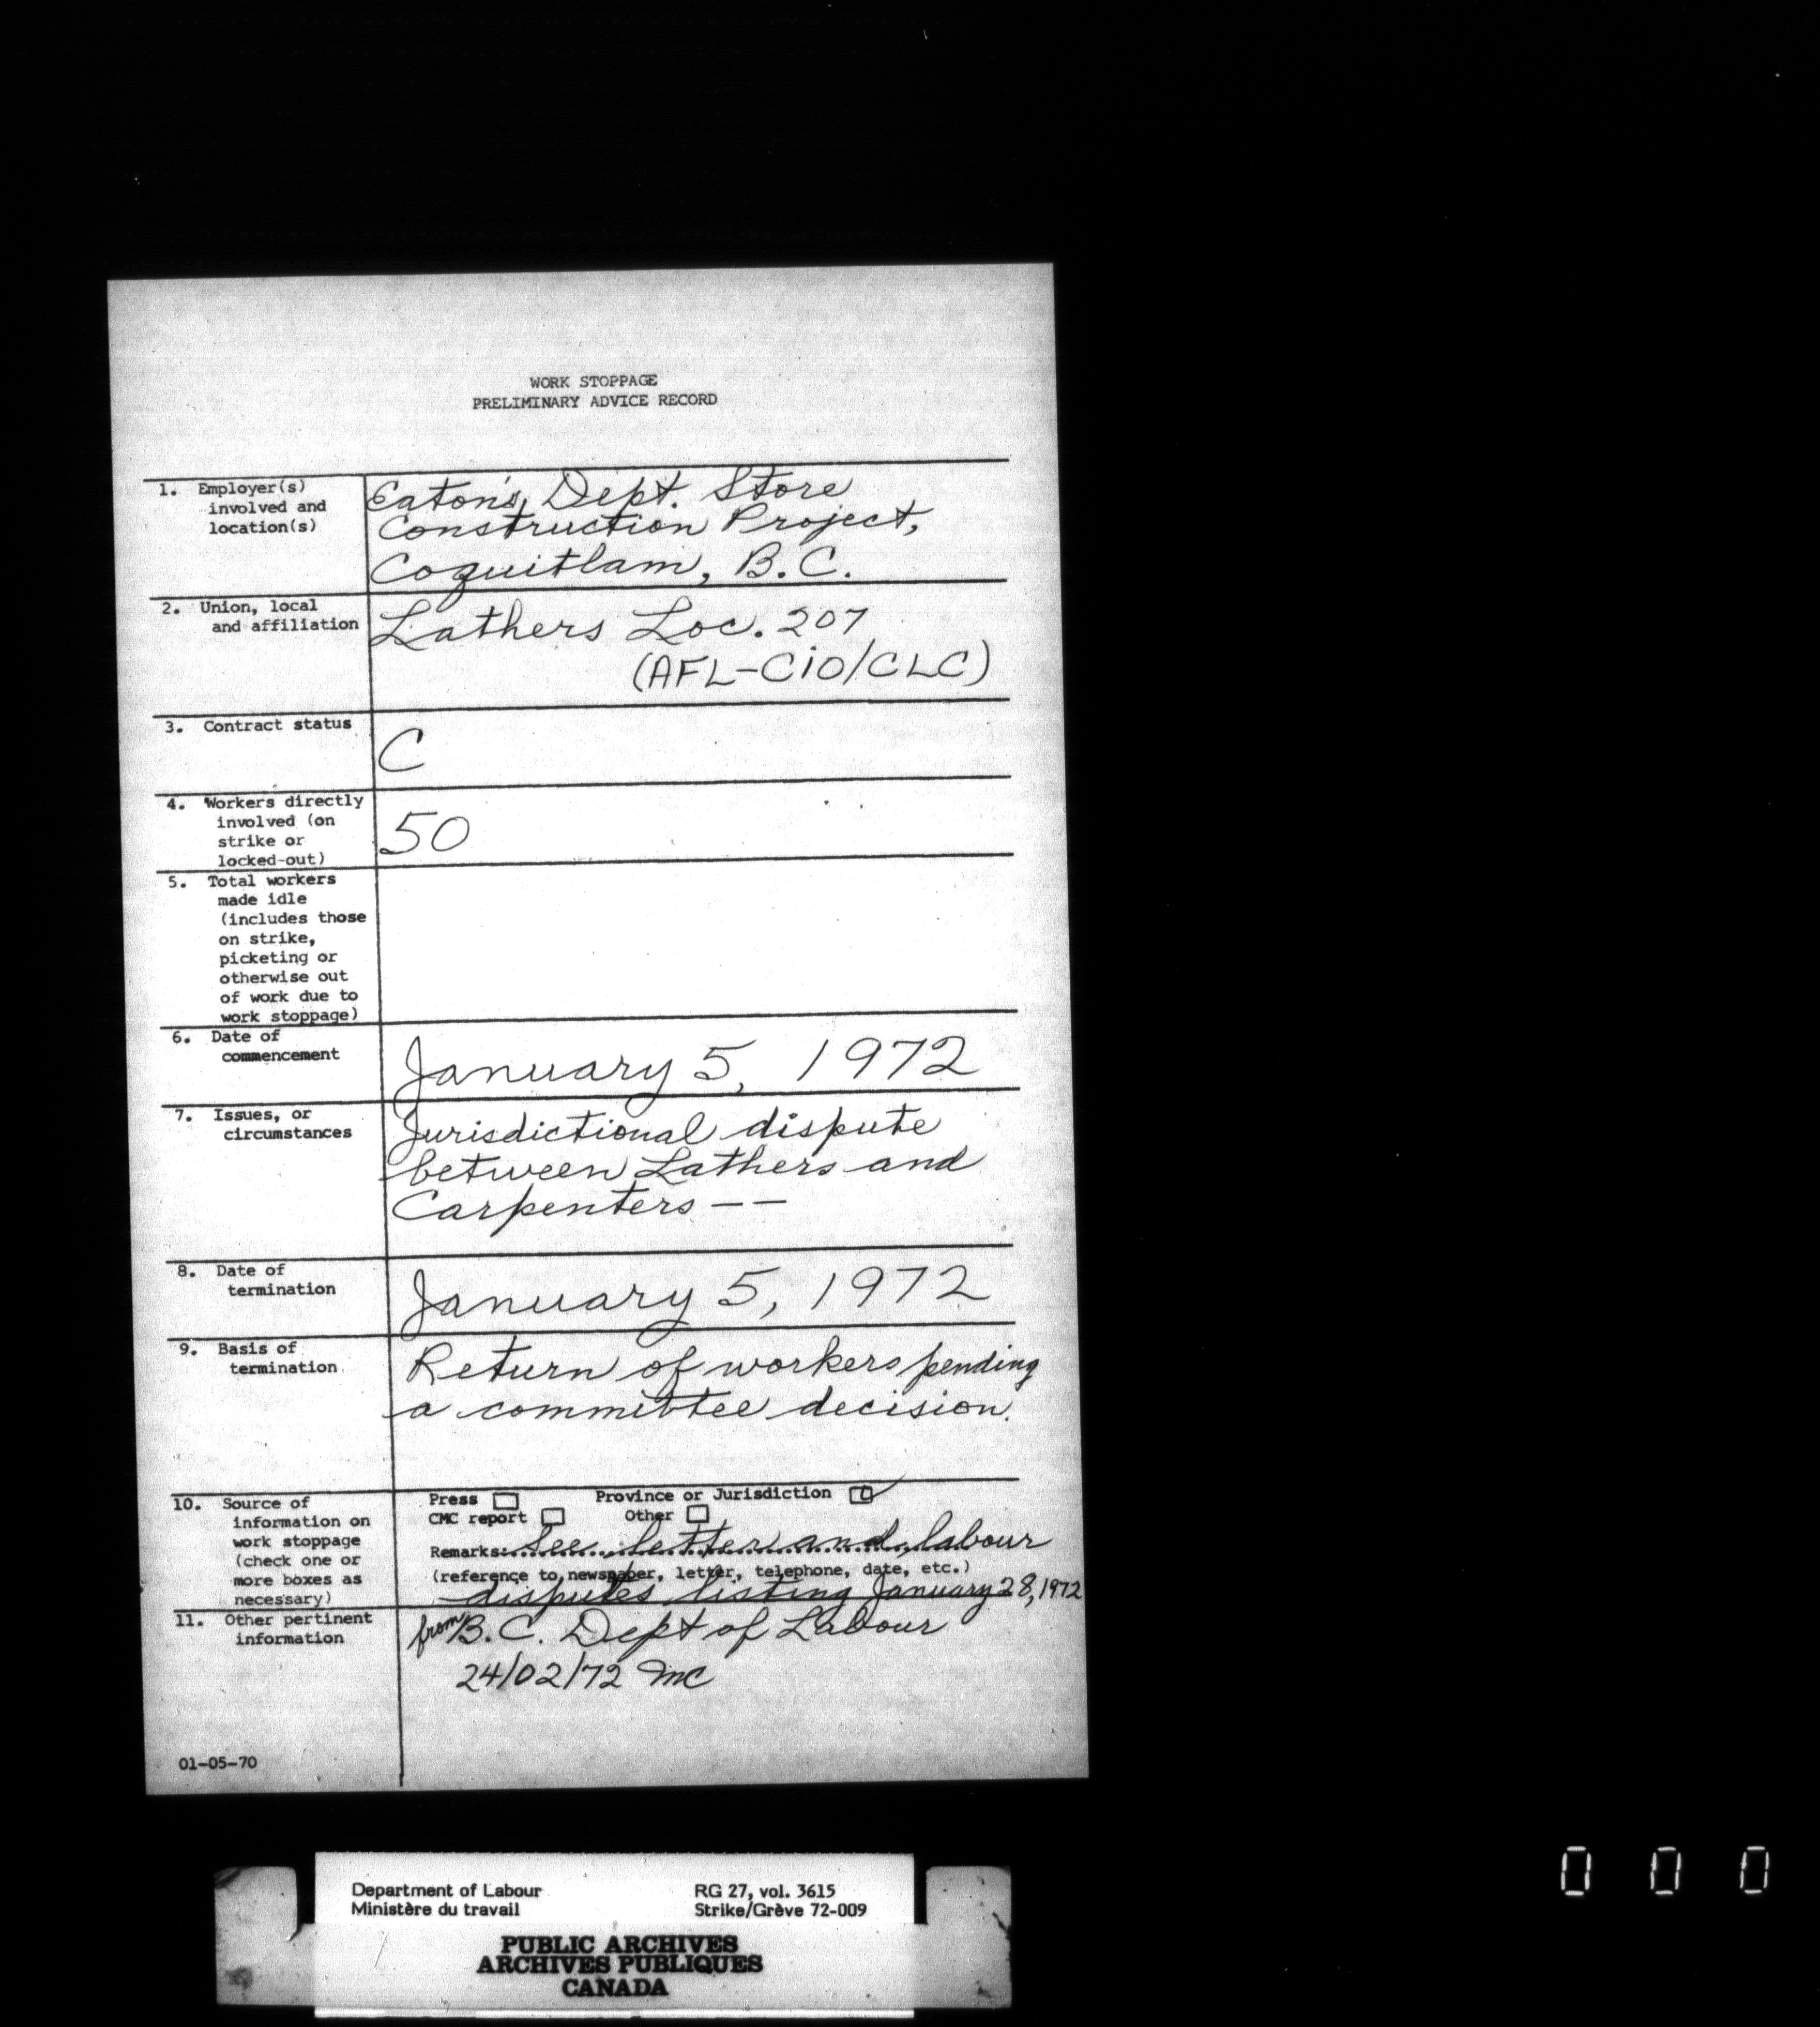 WORK STOPPAGE
PRELIMINARY ADVICE RECORD
1. Employer(s)
involved and
location(s)
Eaton's Dept. Store
Construction Project,
Coquitlam, B.C.
2. Union, local
and affiliation
Lathers Loc. 207
(AFL-CIO/CLC)
3. Contract status
C
4. Workers directly
involved (on
strike or
locked-out)
50
5. Total workers
made idle
(includes those
on strike,
picketing or
otherwise out
of work due to
work stoppage)
6. Date of
commencement
January 5, 1972
7. Issues, or
circumstances
Jurisdictional dispute
between Lathers and
Carpenters --
8. Date of
termination
January 5, 1972
9. Basis of
termination
Return of workers pending
a committee decision.
10. Source of
information on
work stoppage
(check one or
more boxes as
necessary)
Press Province or Jurisdiction
CMC report Other
Remarks: See letter and labour
(reference to newspaper, letter, telephone, date, etc.)
disputes listing January 28, 1972
11. Other pertinent
information
from B.C. Dept of Labour
24/02/72 MC
01-05-70
Department of Labour RG 27, vol. 3615
Ministère du travail Strike/Grève 72-009
PUBLIC ARCHIVES
ARCHIVES PUBLIQUES
CANADA
0 0 0